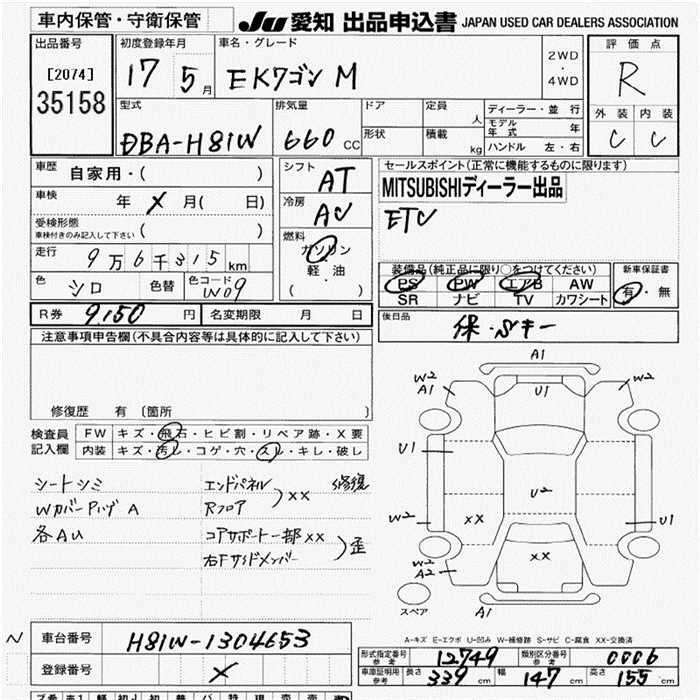 車内保管・守衛保管 JU 愛知 出品申込書 JAPAN USED CAR DEALERS ASSOCIATION
出品番号 初度登録年月 車名・グレード 2WD ・ 4WD 評価点
[2074] 17 5月 EKワゴン M R
35158 型式 排気量 ドア 定員 人 ディーラー・並行 外装 内装
DBA-H81W 660cc 形状 積載 kg モデル年式 年 C C
ハンドル 左・右
車歴 自家用・( ) シフト AT セールスポイント(正常に機能するものに限ります)
車検 年 X 月( 日) 冷房 AC MITSUBISHIディーラー出品
受検形態 ( ) ETC
車検付きのみ記入して下さい
走行 9万6千315km 燃料 ガソリン
軽・油
( ・ )
色 シロ 色替 色コード W09
装備品(純正品に限り○をつけてください) 新車保証書
PS PW エアB AW 有・無
SR ナビ TV カワシート
R券 9,150円 名変期限 月 日 後日品 保・Sキー
注意事項申告欄(不具合内容等は具体的に記入して下さい)
修復歴 有 〔箇所 〕
検査員 FW キズ・飛石・ヒビ割・リペア跡・X要
記入欄 内装 キズ・汚レ・コゲ・穴・スレ・キレ・破レ
シートシミ エンドパネル XX 修復
WカバーPハゲ A Rフロア
各AU コアサポート一部XX 歪
右Fサイドメンバー
A1
W2 A1 U1 W2
U1
U2
W2 XX U1
XX
W2 A2
スペア A1
A-キズ E-エクボ U-凹み W-補修跡 S-サビ C-腐食 XX-交換済
N 車台番号 H81W-1304653
登録番号 X
形式指定番号 参考 12749 類別区分番号 参考 0006
車庫証明用 参考 長さ 339cm 幅 147cm 高さ 155cm